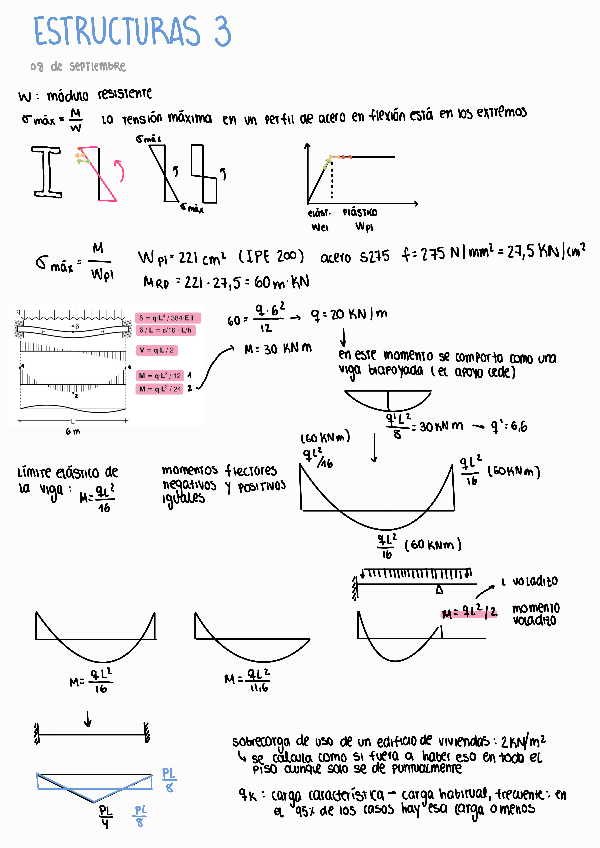 ESTRUCTURAS 3
08 de septiembre
W : módulo resistente
σ máx = M/W La tensión máxima en un perfil de acero en flexión está en los extremos
σ máx
σ máx
elást. plástico
Wel Wpl
σ máx = M/Wpl Wpl = 221 cm² (IPE 200) acero S275 f = 275 N/mm² = 27,5 KN/cm²
MRD = 221 · 27,5 = 60 m·KN
q
δ = q L⁴ / 384 E I
δ / L = ε/16 · L/h
V = q L / 2
M = q L² / 12 1
M = q L² / 24 2
1
2
L
6 m
60 = q · 6²/12 → q = 20 KN/m
→ M = 30 KN m
en este momento se comporta como una
viga biapoyada (el apoyo cede)
q'L²/8 = 30 KN m → q' = 6,6
Límite elástico de
la viga : M = qL²/16
momentos flectores
negativos y positivos
iguales
(60 KNm)
qL²/16
qL²/16 (60KNm)
qL²/16 (60 KNm)
L voladizo
M = qL²/2 momento
voladizo
M = qL²/16
M = qL²/11,6
PL/8
PL/4 PL/8
sobrecarga de uso de un edificio de viviendas : 2KN/m²
↳ se calcula como si fuera a haber eso en todo el
piso aunque solo se de puntualmente
qK : carga característica - carga habitual, frecuente : en
el 95% de los casos hay esa carga o menos